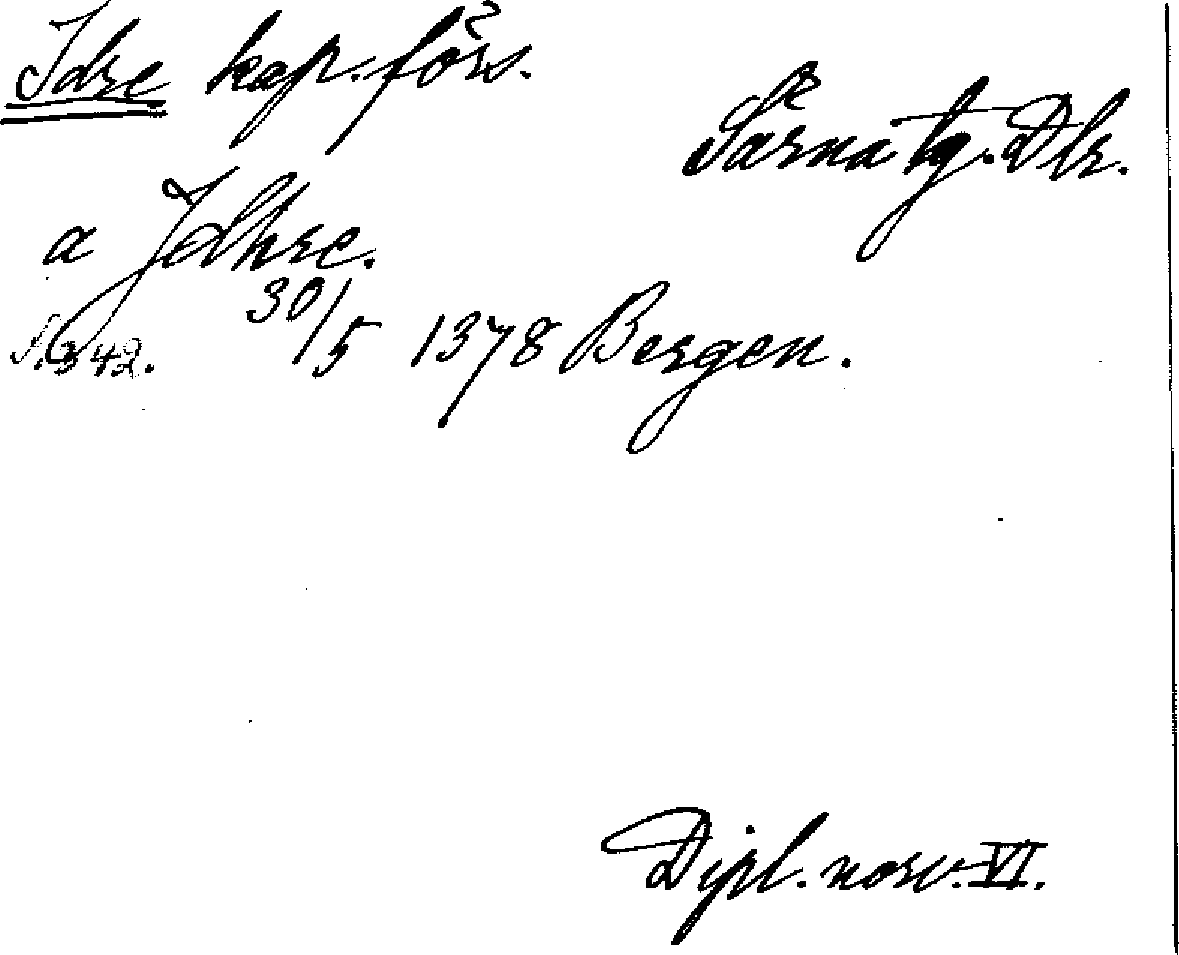 Idre kap. förs.
Särna tg. Dlr.
a Jdhre.
S. 342. 30/5 1378 Bergen.
Dipl. norv. VI.